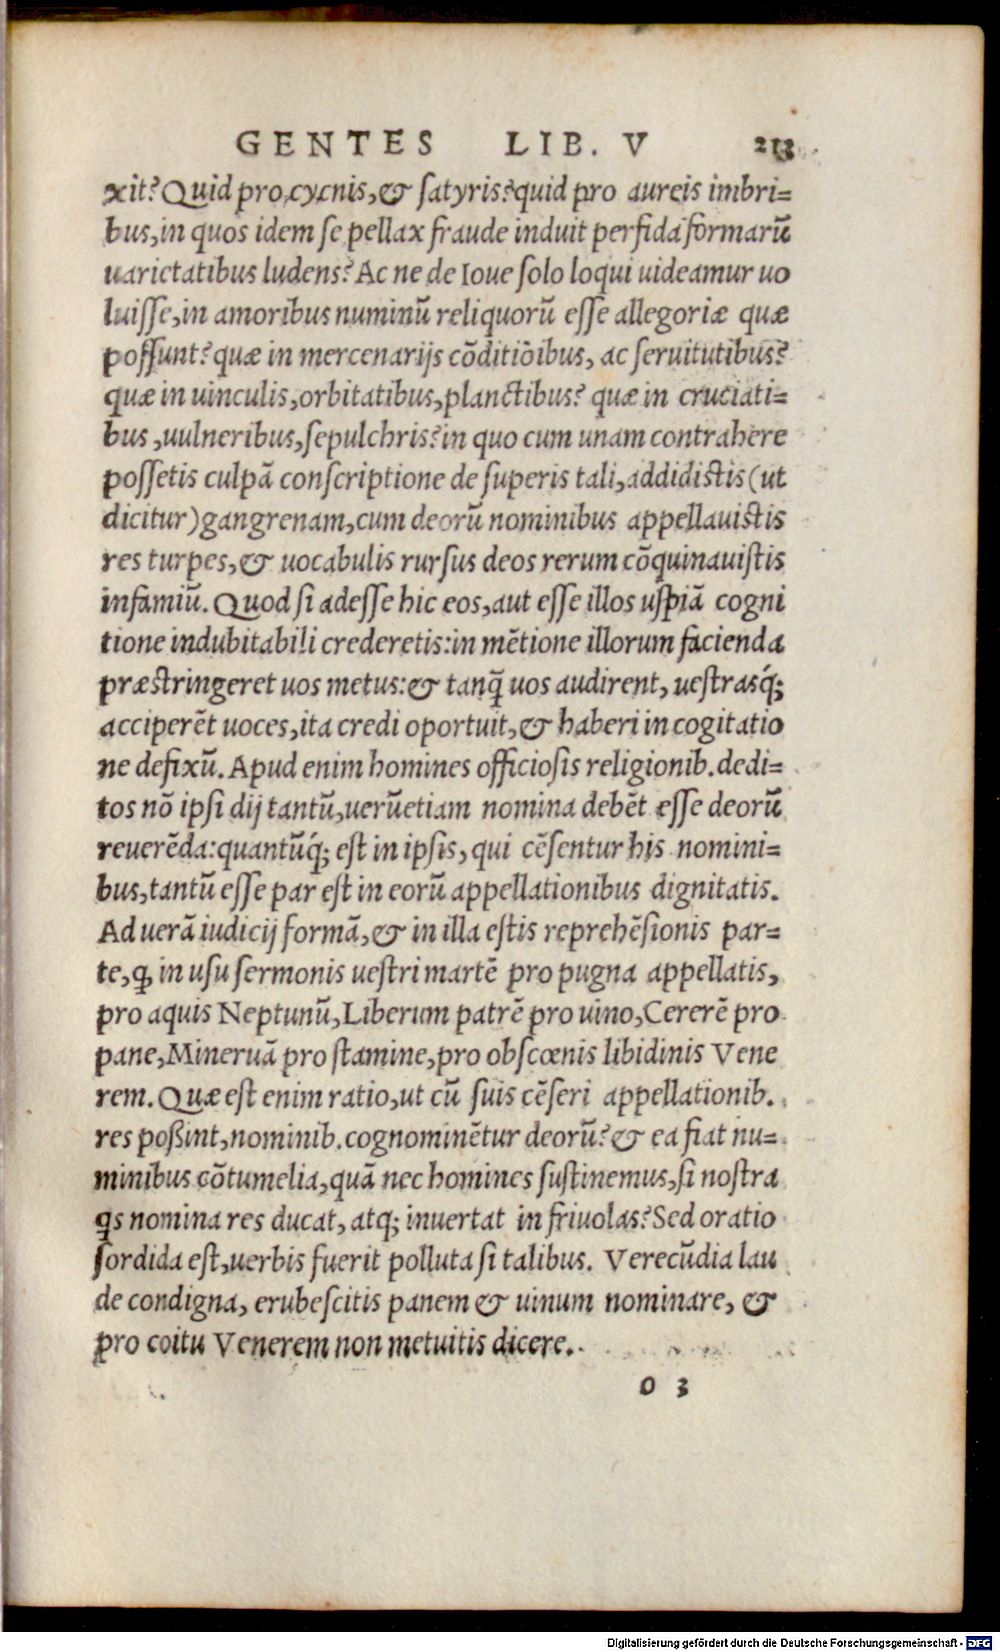 GENTES LIB. V 213
xit? Quid pro cycnis, & satyris? quid pro aureis imbri=
bus, in quos idem se pellax fraude induit perfida formarū
uarietatibus ludens? Ac ne de Ioue solo loqui uideamur uo
luisse, in amoribus numinū reliquorū esse allegoriæ quæ
possunt? quæ in mercenarijs cōditiōibus, ac seruitutibus?
quæ in uinculis, orbitatibus, planctibus? quæ in cruciati=
bus, uulneribus, sepulchris? in quo cum unam contrahere
possetis culpā conscriptione de superis tali, addidistis (ut
dicitur) gangrenam, cum deorū nominibus appellauistis
res turpes, & uocabulis rursus deos rerum cōquinauistis
infamiū. Quod si adesse hic eos, aut esse illos uspiā cogni
tione indubitabili crederetis: in mētione illorum facienda
præstringeret uos metus: & tanq̄ uos audirent, uestrasq́;
acciperēt uoces, ita credi oportuit, & haberi in cogitatio
ne defixū. Apud enim homines officiosis religionib. dedi=
tos nō ipsi dij tantū, uerūetiam nomina debēt esse deorū
reuerēda: quantūq́; est in ipsis, qui cēsentur his nomini=
bus, tantū esse par est in eorū appellationibus dignitatis.
Ad uerā iudicij formā, & in illa estis reprehēsionis par=
te, ꝙ in usu sermonis uestri martē pro pugna appellatis,
pro aquis Neptunū, Liberum patrē pro uino, Cererē pro
pane, Mineruā pro stamine, pro obscœnis libidinis Vene
rem. Quæ est enim ratio, ut cū suis cēseri appellationib.
res poßint, nominib. cognominētur deorū? & ea fiat nu=
minibus cōtumelia, quā nec homines sustinemus, si nostra
ꝗs nomina res ducat, atq; inuertat in friuolas? Sed oratio
sordida est, uerbis fuerit polluta si talibus. Verecūdia lau
de condigna, erubescitis panem & uinum nominare, &
pro coitu Venerem non metuitis dicere.
o 3
Digitalisierung gefördert durch die Deutsche Forschungsgemeinschaft - DFG